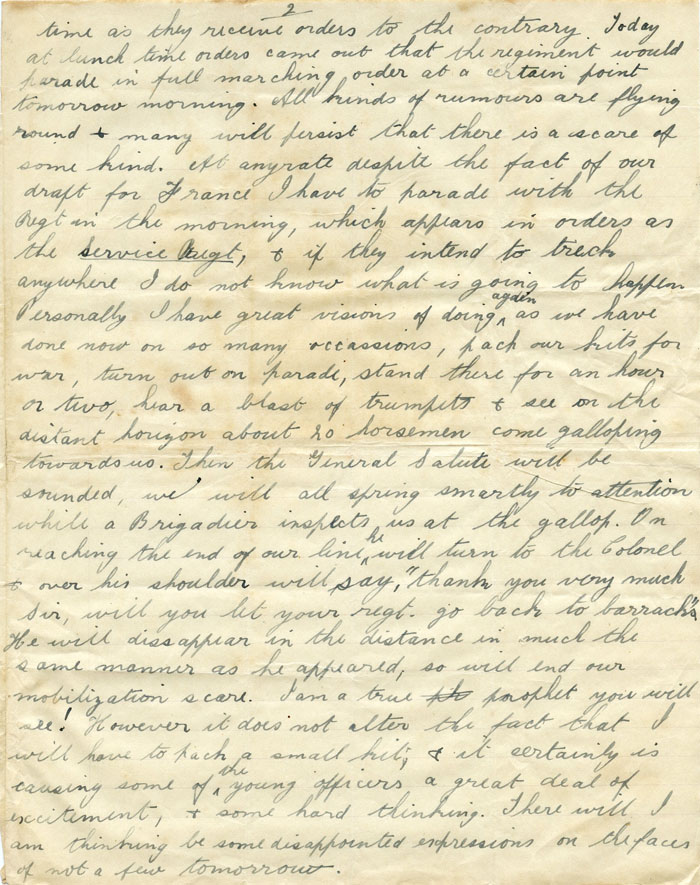 2
time as they receive orders to the contrary. Today
at lunch time orders came out that the regiment would
parade in full marching order at a certain point
tomorrow morning. All kinds of rumours are flying
round & many will persist that there is a scare of
some kind. At anyrate despite the fact of our
draft for France I have to parade with the
Regt in the morning, which appears in orders as
the service Regt, & if they intend to treck
anywhere I do not know what is going to happen
Personally I have great visions of doing again, as we have
done now on so many occassions, pack our kits for
war, turn out on parade, stand there for an hour
or two, hear a blast of trumpets & see on the
distant horizon about 20 horsemen come galloping
towards us. Then the General Salute will be
sounded, we will all spring smartly to attention
while a Brigadier inspects us at the gallop. On
reaching the end of our line, he will turn to the Colonel
& over his shoulder will say, "thank you very much
Sir, will you let your regt. go back to barracks".
He will dissappear in the distance in much the
same manner as he appeared, so will end our
mobilization scare. I am a true prophet you will
see! However it does not alter the fact that I
will have to pack a small kit, & it certainly is
causing some of the young officers a great deal of
excitement, & some hard thinking. There will I
am thinking be some disappointed expressions on the faces
of not a few tomorrow.